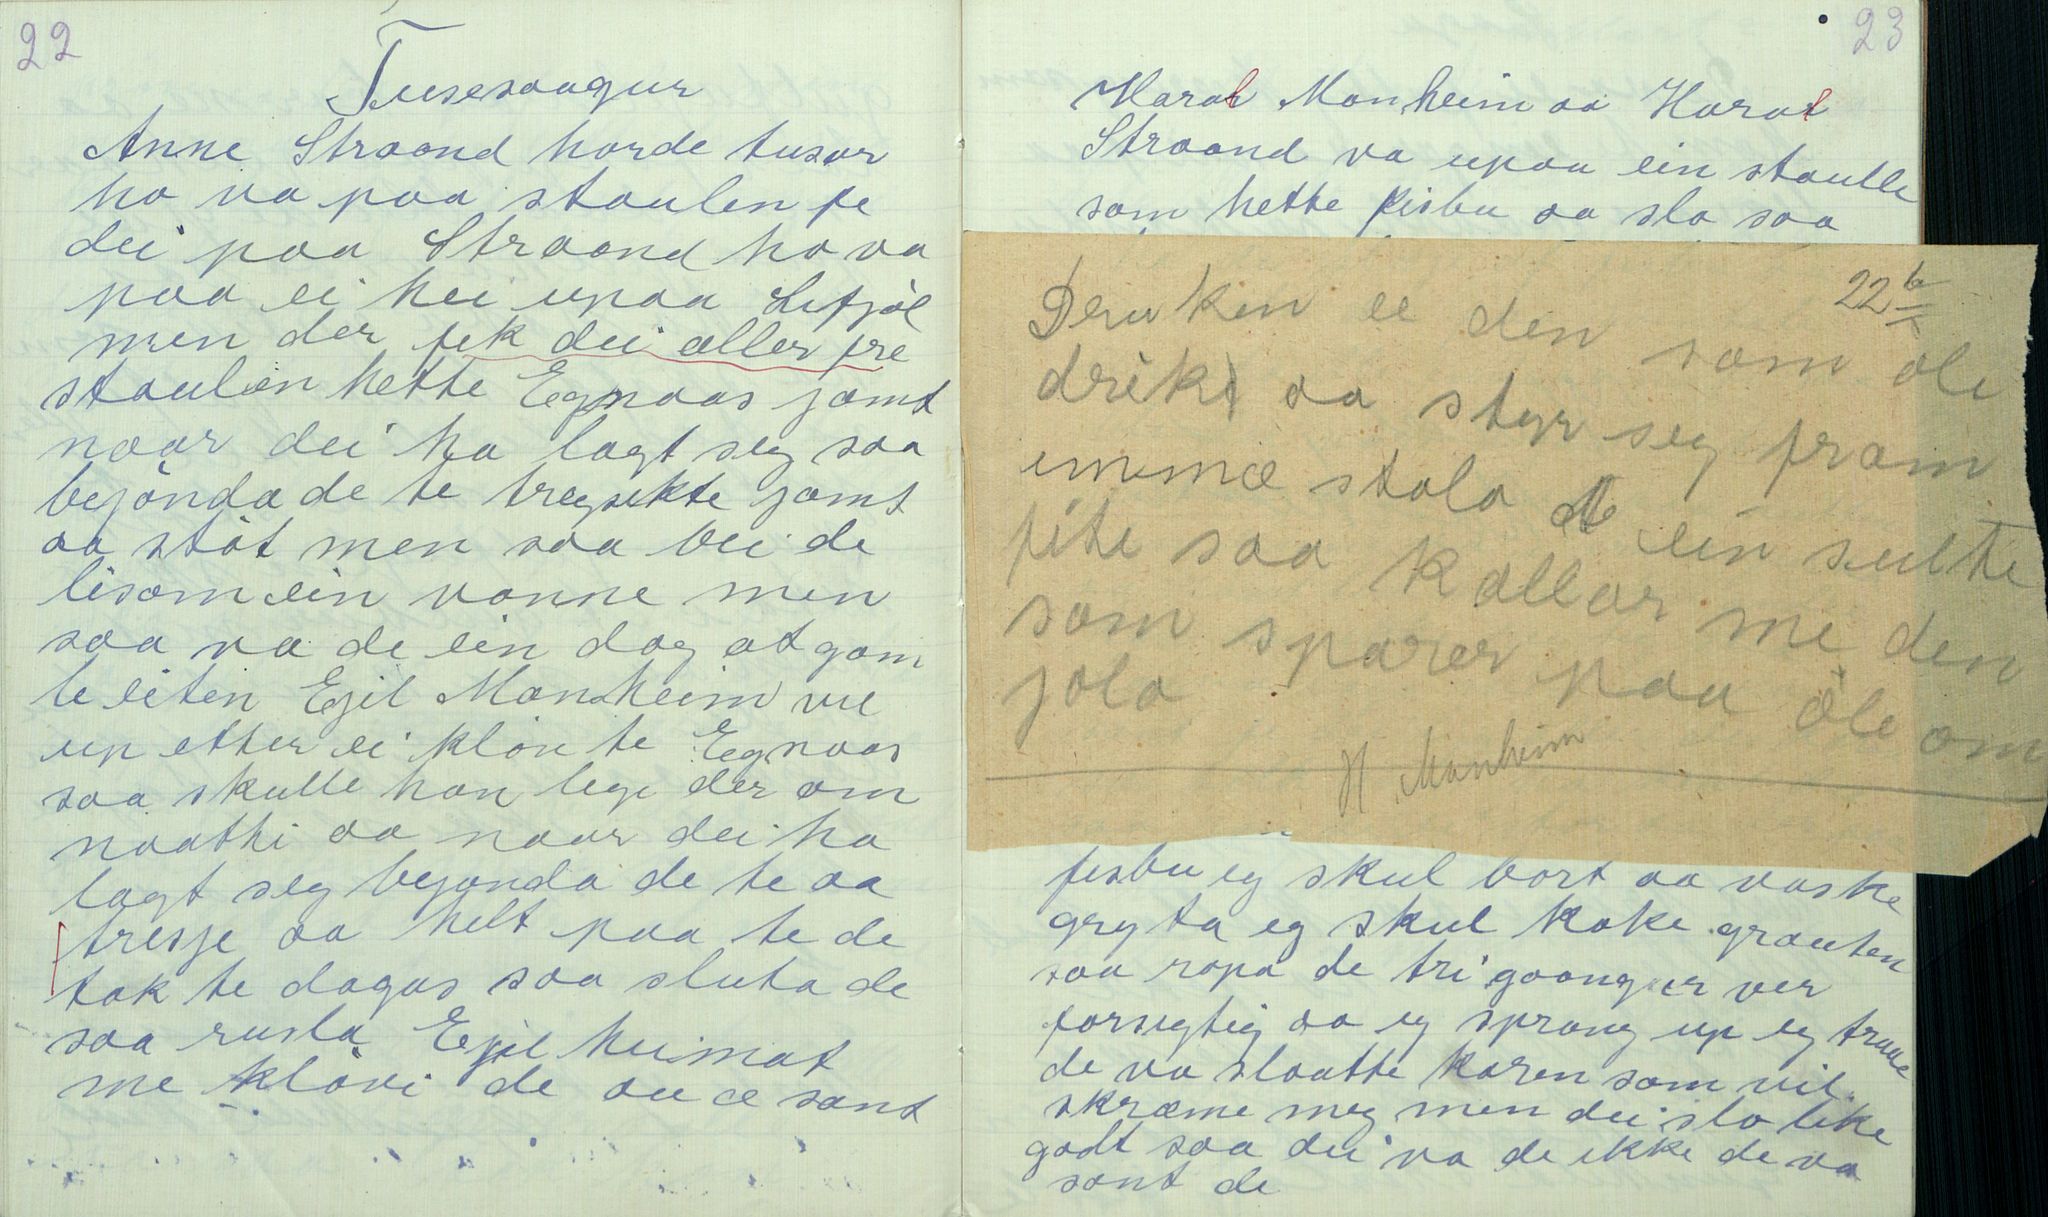 22
Tusesoogur
Anne Stroond horde tusar
ho va paa staulen fe
dei paa Stroond ho va
paa ei hei upaa Lifjöl
men der fek dei aller fre
staulen hette Egnaas jamt
naar dei ha lagt seg saa
bejönda de te treysekte jamt
aa stöt men saa blei de
lisom ein vanne men
saa va de ein dag at gam
le liten Egil Manheim vil
up etter ei klöv te Egnaas
saa skulle han lege der om
naatti aa naar dei ha
lagt seg bejonda de te aa
tresje aa helt paa te de
tok te dagas saa sluta de
saa rusla Egil heimat
me klövi de au æ sant
23
Haral Manheim aa Haral
Stroond va upaa ein staulle
som hette fisbu aa slo saa
22 b
Druken ee den som öle
drikt aa styr seg fram
imme stola ein sulte
fite saa kallar me den
som sparer paa öle om
jola
H Manheim
fisbu eg skul bort aa vaske
gryta eg skul koke grauten
saa ropa de tri goongur ver
forsegtig aa eg sprang up eg truue
de va slaatte karen som vil
skræme meg men dei slo like
godt saa dei va de ikke de va
sant de